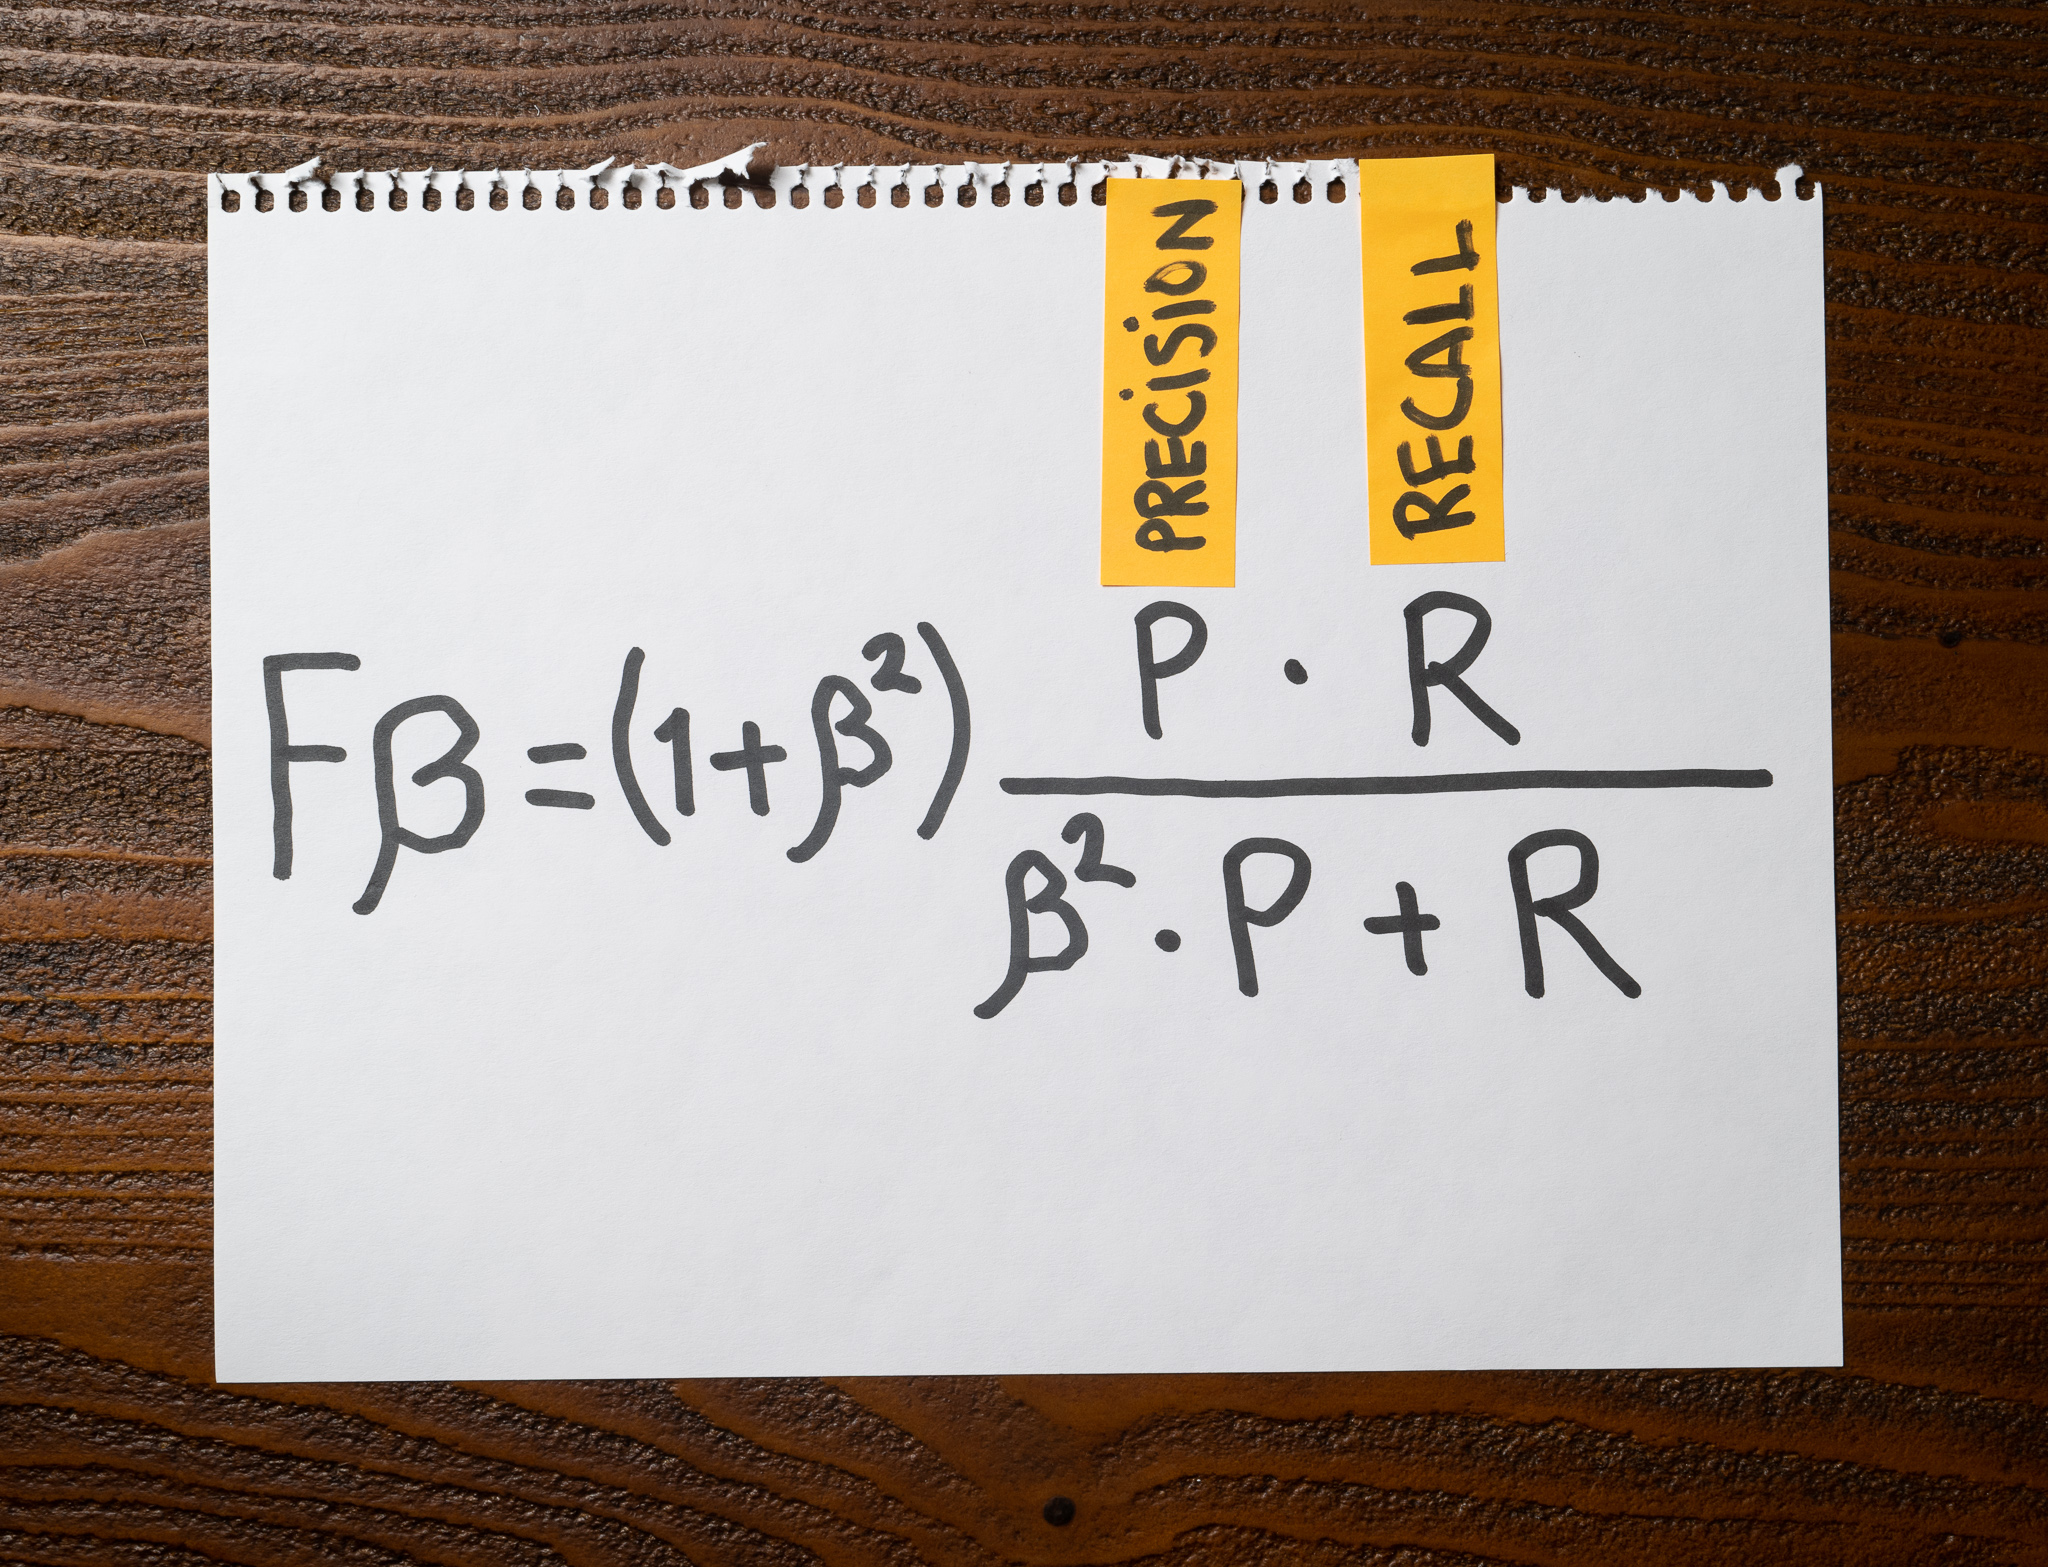 PRECISION
RECALL
Fβ = (1+β²) P · R
β² · P + R